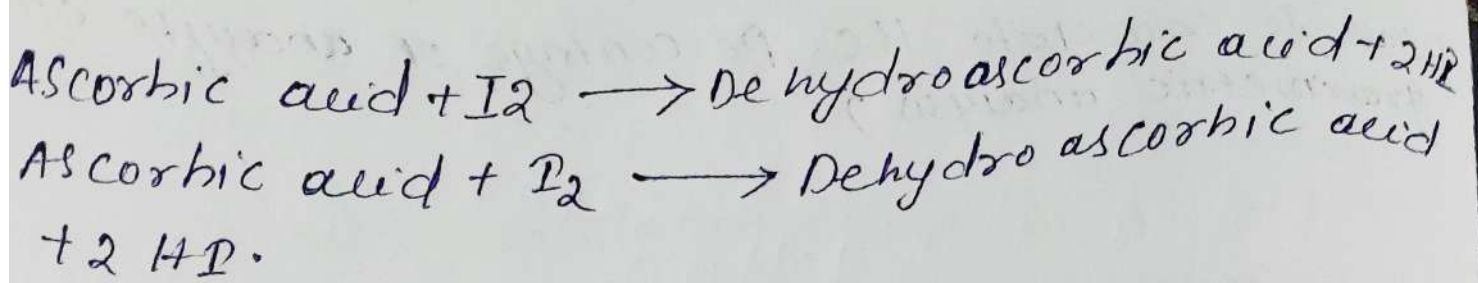 Ascorbic acid + I2 → Dehydroascorbic acid + 2HI
Ascorbic acid + I2 → Dehydro ascorbic acid
+ 2 HI.